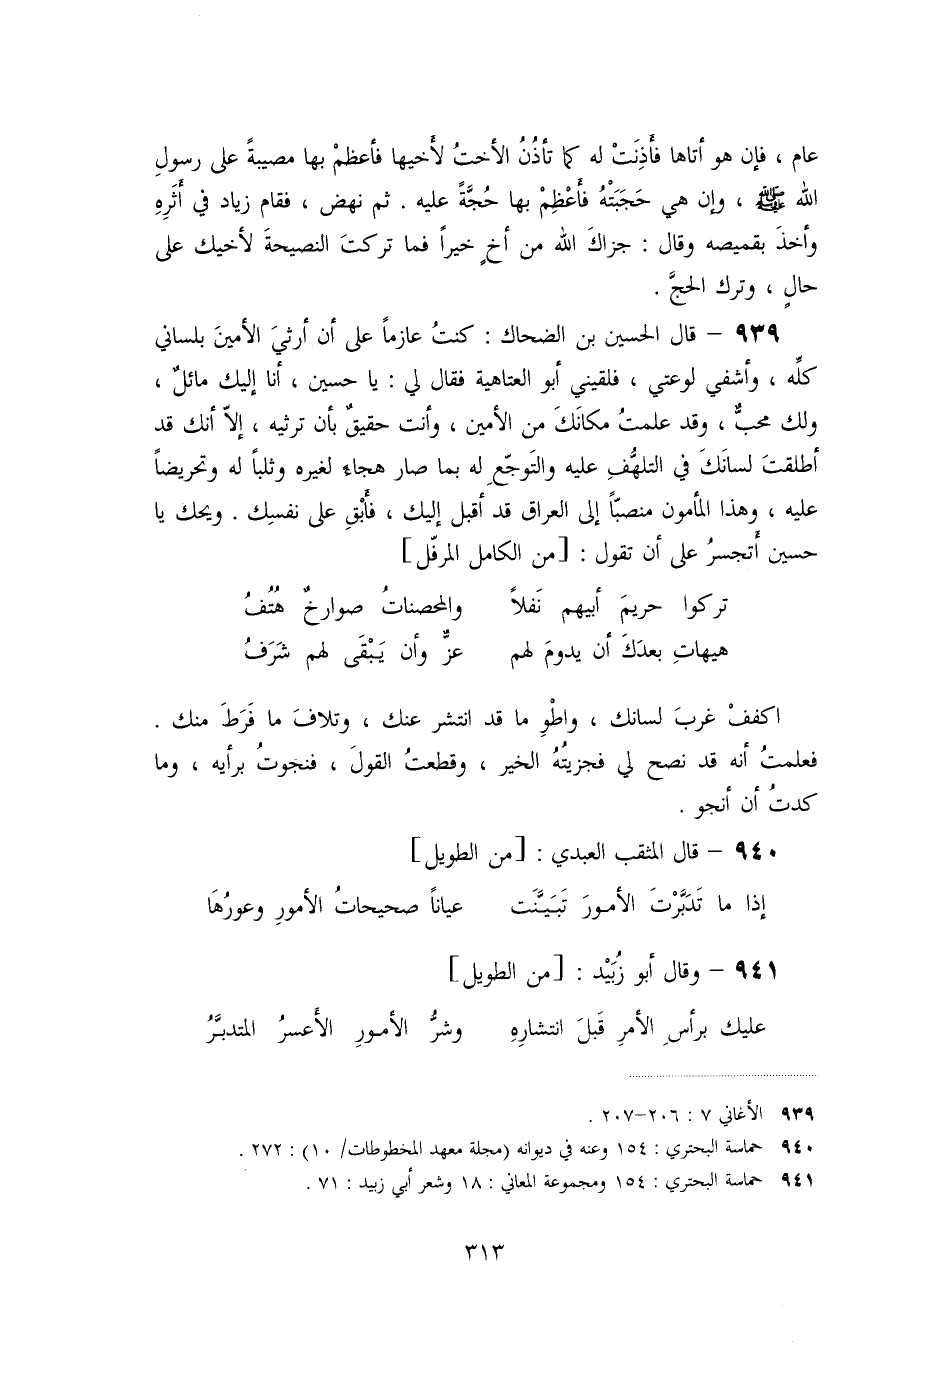 عام ، فإن هو أتاها فأَذِنَتْ له كما تأذُنُ الأختُ لأَخيها فأعظمْ بها مصيبةً على رسولِ
الله ﷺ ، وإن هي حَجَبَتْهُ فأَعْظِمْ بها حُجَّةً عليه . ثم نهض ، فقام زياد في أَثَرِهِ
وأخذَ بقميصه وقال : جزاكَ الله من أخٍ خيراً فما تركتَ النصيحةَ لأخيك على
حالٍ ، وترك الحجَّ .
٩٣٩ – قال الحسين بن الضحاك : كنتُ عازماً على أن أرثيَ الأمينَ بلساني
كلِّه ، وأشفي لوعتي ، فلقيني أبو العتاهية فقال لي : يا حسين ، أنا إليك مائلٌ ،
ولك محبٌّ ، وقد علمتُ مكانَكَ من الأمين ، وأنت حقيقٌ بأن ترثيه ، إلاّ أنك قد
أطلقتَ لسانَكَ في التلهُّفِ عليه والتَوجّعِ له بما صار هجاء لغيره وثلباً له وتحريضاً
عليه ، وهذا المأمون منصبّاً إلى العراق قد أقبل إليك ، فأَبْقِ على نفسِك . ويحك يا
حسين أَتجسرُ على أن تقول : [من الكامل المرفّل]
تركوا حريمَ أبيهم نَفلاً والمحصناتُ صوارخٌ هُتُفُ
هيهاتِ بعدَكَ أن يدومَ لهم عزٌّ وأن يَبْقَى لهم شَرَفُ
اكففْ غربَ لسانك ، واطْوِ ما قد انتشر عنك ، وتلافَ ما فَرَطَ منك .
فعلمتُ أنه قد نصح لي فجزيتُهُ الخير ، وقطعتُ القولَ ، فنجوتُ برأيه ، وما
كدتُ أن أنجو .
٩٤٠ – قال المثقب العبدي : [من الطويل]
إذا ما تَدَبَّرْتَ الأمورَ تَبَيَّنَت عياناً صحيحاتُ الأمورِ وعورُهَا
٩٤١ – وقال أبو زُبَيْد : [من الطويل]
عليك برأسِ الأمرِ قَبلَ انتشارِهِ وشرُّ الأمورِ الأَعسرُ المتدبَّرُ
٩٣٩ الأغاني ٧ : ٢٠٦–٢٠٧ .
٩٤٠ حماسة البحتري : ١٥٤ وعنه في ديوانه (مجلة معهد المخطوطات/ ١٠) : ٢٧٢ .
٩٤١ حماسة البحتري : ١٥٤ ومجموعة المعاني : ١٨ وشعر أبي زبيد : ٧١ .
٣١٣